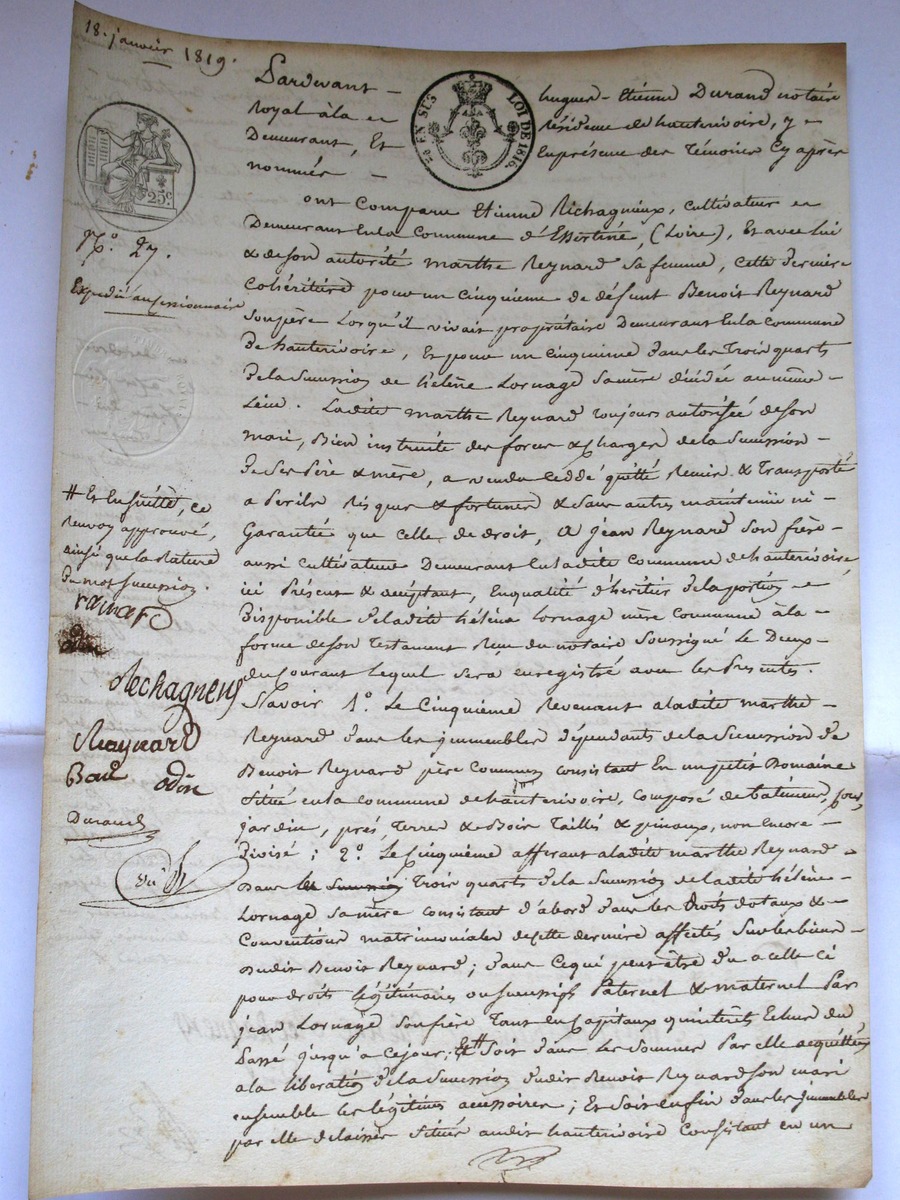 18. janvier 1819.
Pardevant – hugues – Etienne Durand notaire
Royal à la résidence de hauterivoire, y
EN SUS
LOI DE 1816.
Demeurant, Et En présence des Témoins Cy après
nommés –
25c
ont Comparu Etienne Richagneux, cultivateur
Demeurant En la Commune d'Essertine, (Loire), Et avec lui
& de son autorité marthe Reynard sa femme, cette dernière
Cohéritière pour un cinquième de défunt Benoit Reynard
Son père Lorsqu'il vivait propriétaire Demeurant En la Commune
De hauterivoire, Et pour un cinquième dans les Trois quarts
De la Succession de hélène Lornage Sa mère décédée au même
Lieu. Ladite marthe Reynard toujours autorisée de son
mari, Bien instruite des forces & Charges de la Succession –
De Ses père & mère, a vendu Cédé quitté Remis & Transporté
a Perils Risques & fortunes & Sans autres maintenue ni
Garantie que celle de droit, A jean Reynard Son frère
aussi cultivateur Demeurant En ladite Commune de hauterivoire,
ici Présent & acceptant, En qualité d'héritier de la portion
Disponible de ladite hélène Lornage mère Commune à la
forme de son Testament Reçu du notaire Soussigné Le Deux
du Courant Lequel Sera enregistré avec les Présentes.
Savoir 1º. Le Cinquième Revenant à ladite marthe
Reynard dans les immeubles dépendants de la Succession de
Benoit Reynard père Commun consistant En un petit Domaine
Situé en la commune de hauterivoire, composé de batiments, cour,
jardin, prés, Terres & Bois Taillés & pinaux, non encore
Divisé ; 2º. Le Cinquième afférant à ladite marthe Reynard
Dans les Trois quarts de la Succession de ladite hélène
Lornage Sa mère consistant d'abord dans les droits dotaux &
Conventions matrimoniales de cette dernière affectés Sur les biens
dudit Benoit Reynard ; dans Ce qui peut être du a celle ci
pour droits légitimaires ou successifs Paternel & maternel Par
jean Lornage Son frère Tant en Capitaux qu'intérets Echus du
Passé jusqu'a ce jour ; # Soit dans les Sommes Par elle acquittées
a la libération de la Succession dudit Benoit Reynard son mari
ensemble les légitimes accessoires ; Et Soit enfin dans les immeubles
par elle delaissés Situés audit hauterivoire Consistant en un
Nº. 27.
Expédié au cessionnaire
# Et Ensuitte, ce
Renvoy approuvé,
ainsi que la Rature
du mot Succession.
Rechagneux
Raynard
odin
Durand